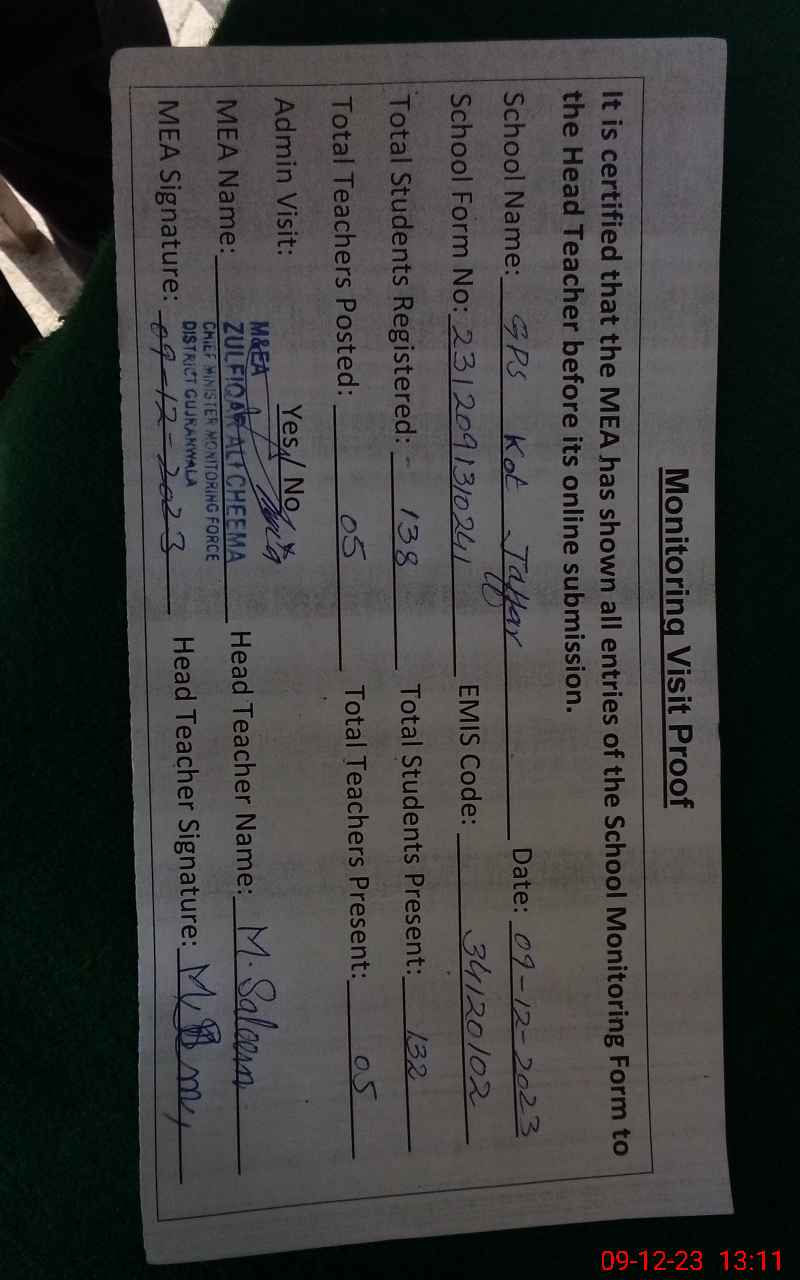 Monitoring Visit Proof
It is certified that the MEA has shown all entries of the School Monitoring Form to
the Head Teacher before its online submission.
School Name: GPS Kot Jaffar Date: 09-12-2023
School Form No: 2312091310241 EMIS Code: 34120102
Total Students Registered: 138 Total Students Present: 132
Total Teachers Posted: 05 Total Teachers Present: 05
Admin Visit: Yes / No
M&EA
MEA Name: ZULFIQAR ALI CHEEMA Head Teacher Name: M. Saleem
CHIEF MINISTER MONITORING FORCE
DISTRICT GUJRANWALA
MEA Signature: 09-12-2023 Head Teacher Signature:
09-12-23 13:11